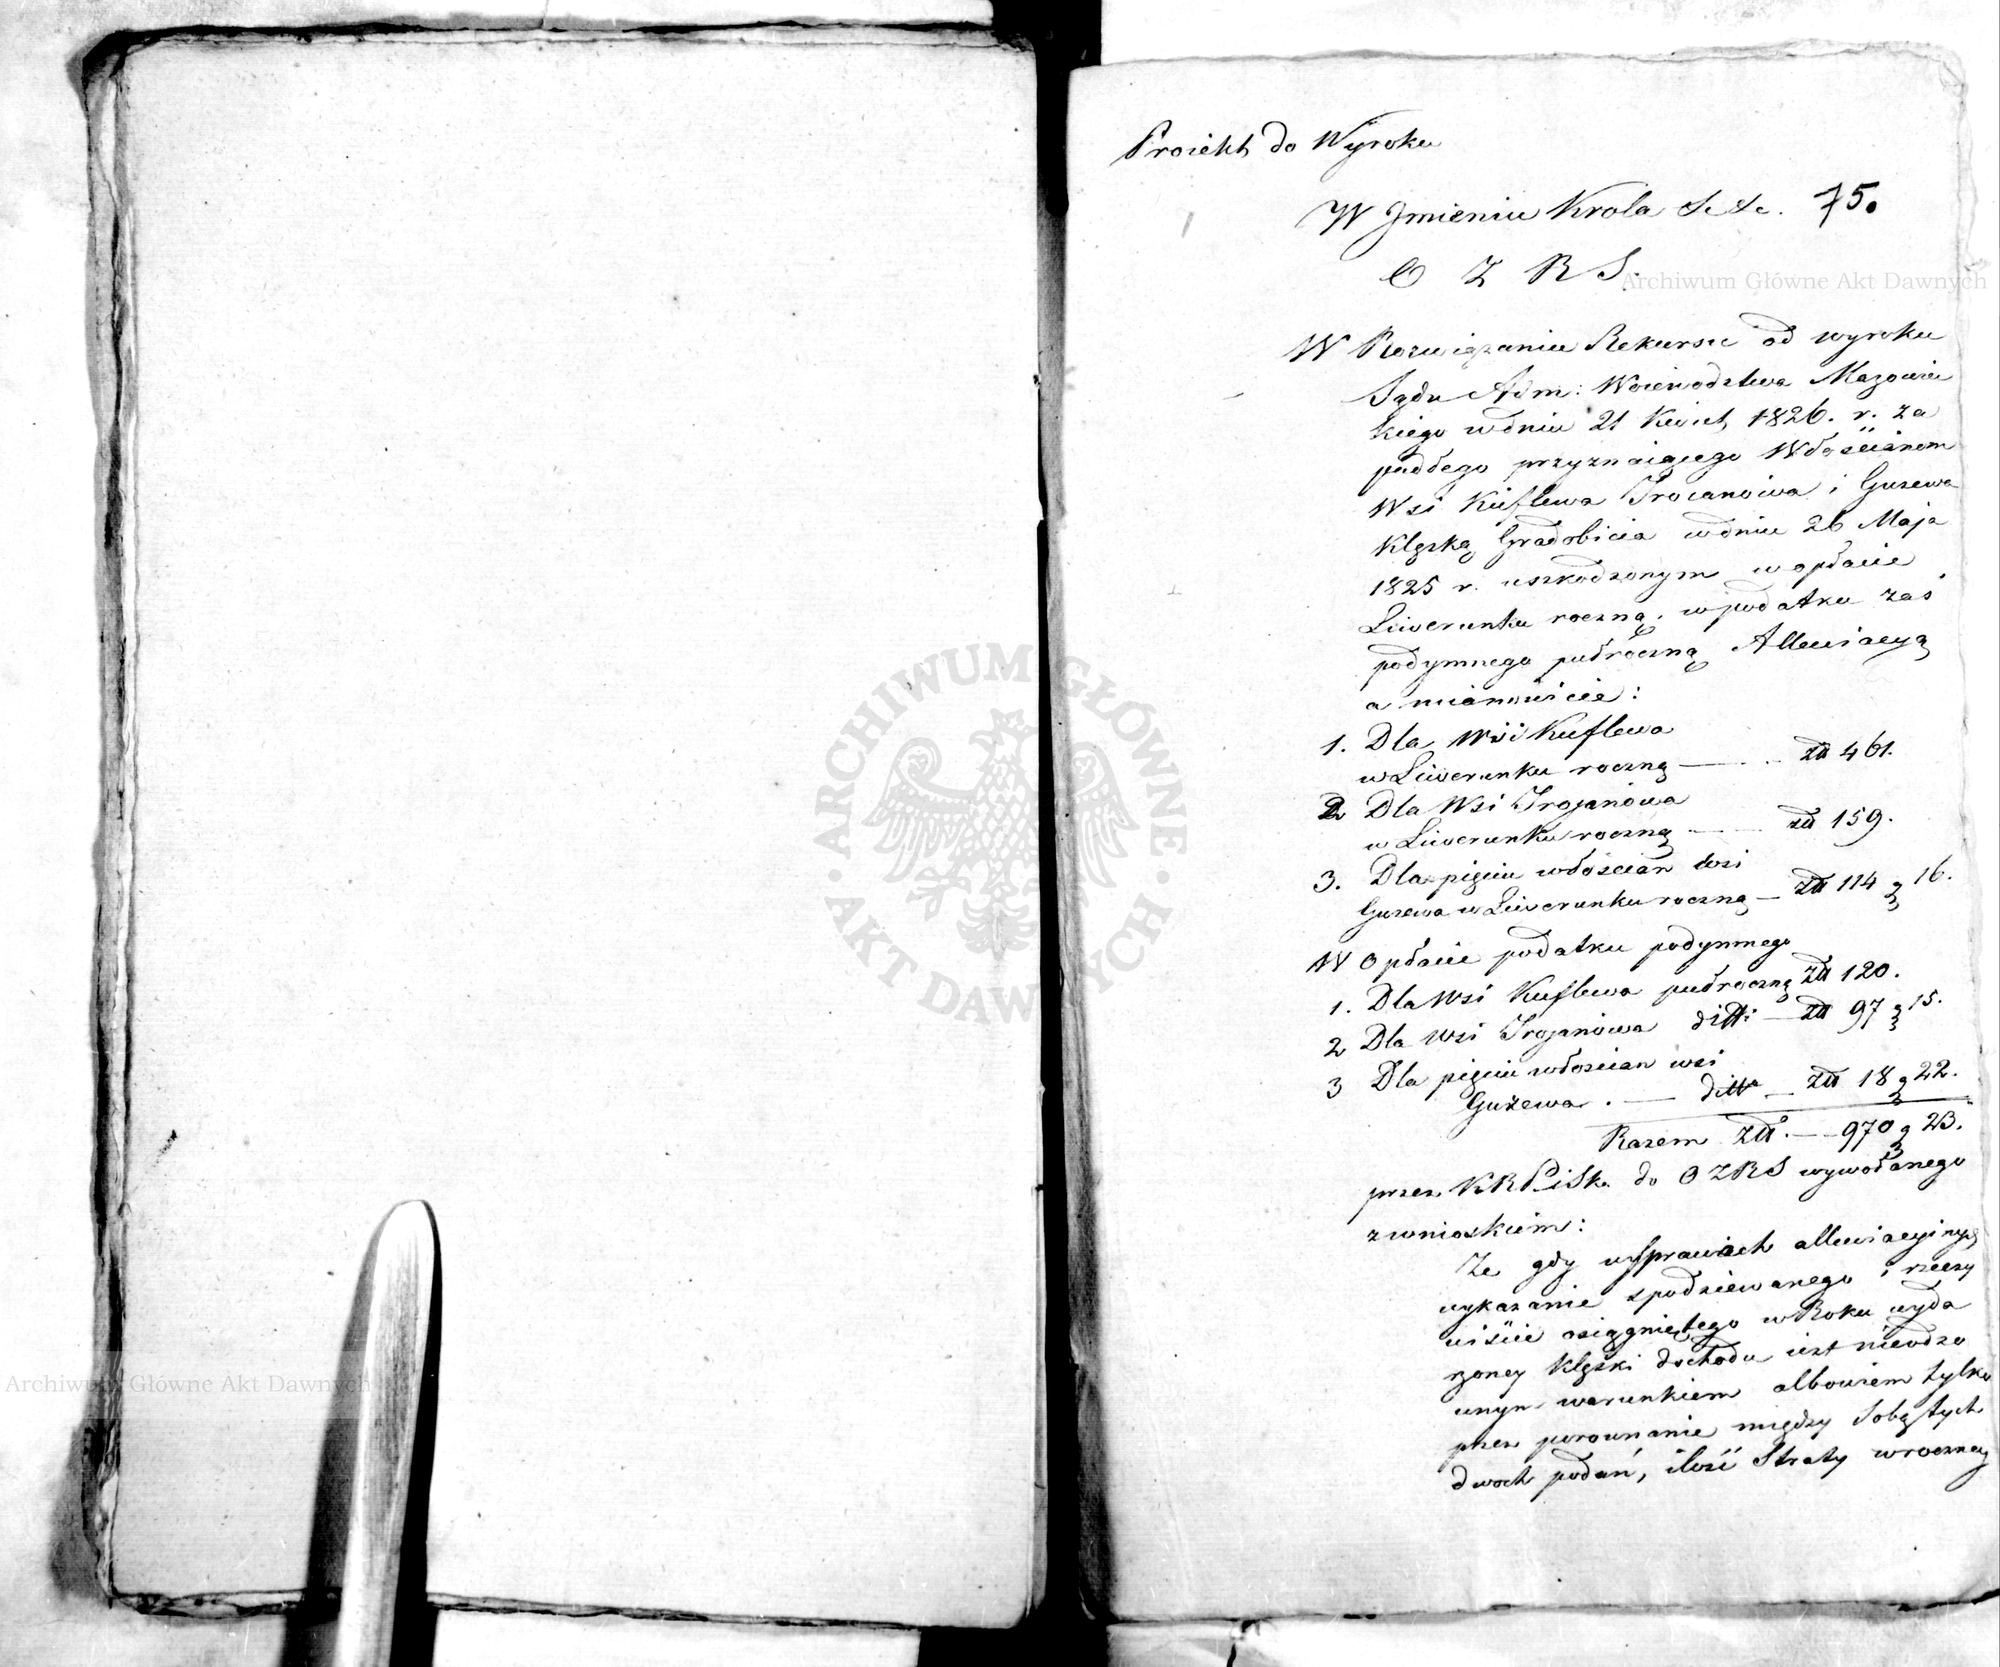 Proiekt do Wyroku
W Jmieniu Krola &c &c. 75.
O Z R S.
W Rozwiązaniu Rekursu od wyroku
Sądu Adm: Woiewodztwa Mazowiec
kiego w dniu 21 Kwiet. 1826. r. za
padłego przyznaiącego Włościanom
Wsi Kuflewa Trojanowa i Guzewa
Klęską Gradobicia w dniu 26 Maja
1825 r. uszkodzonym w opłacie
Liwerunku roczną, w podatku zaś
podymnego pułroczną Allewiacyą
a mianowicie:
1. Dla Wsi Kuflewa
w Liwerunku roczną — . . zł 461.
2 Dla Wsi Trojanowa
w Liwerunku roczną — zł 159.
3. Dla pięciu włościan wsi
Guzewa w Liwerunku roczną — zł 114 g 16.
W Opłacie podatku podymnego
1. Dla Wsi Kuflewa pułroczną zł 120.
2 Dla Wsi Trojanowa ditto — zł 97 g 15.
3 Dla pięciu włoscian wsi
Guzewa . — ditto — zł 18 g 22.
Razem zł. — 970 g 23.
przez KRPiSka do OZRS wywołanego
z wnioskiem:
Że gdy w sprawach allewiacyinych
wykazanie spodziewanego i rzeczy
wiście osiągniętego w Roku wyda
rzoney klęski dochodu iest nieodzo
wnym warunkiem albowiem tylko
przez porownanie między Sobą tych
dwoch podań, ilość Straty w roczney